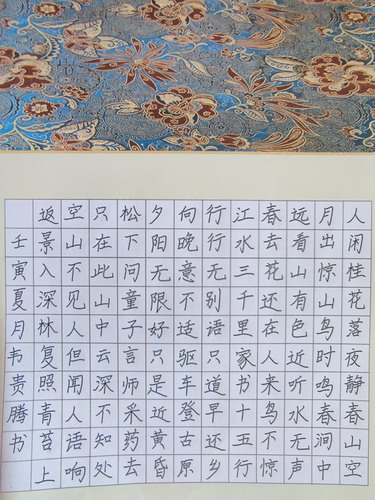 人闲桂花落夜静春山空
月出惊山鸟时鸣春涧中
远看山有色近听水无声
春去花还在人来鸟不惊
江水三千里家书十五行
行行无别语只道早还乡
向晚意不适驱车登古原
夕阳无限好只是近黄昏
松下问童子言师采药去
只在此山中云深不知处
空山不见人但闻人语响
返景入深林复照青苔上
壬寅夏月韦贵腾书